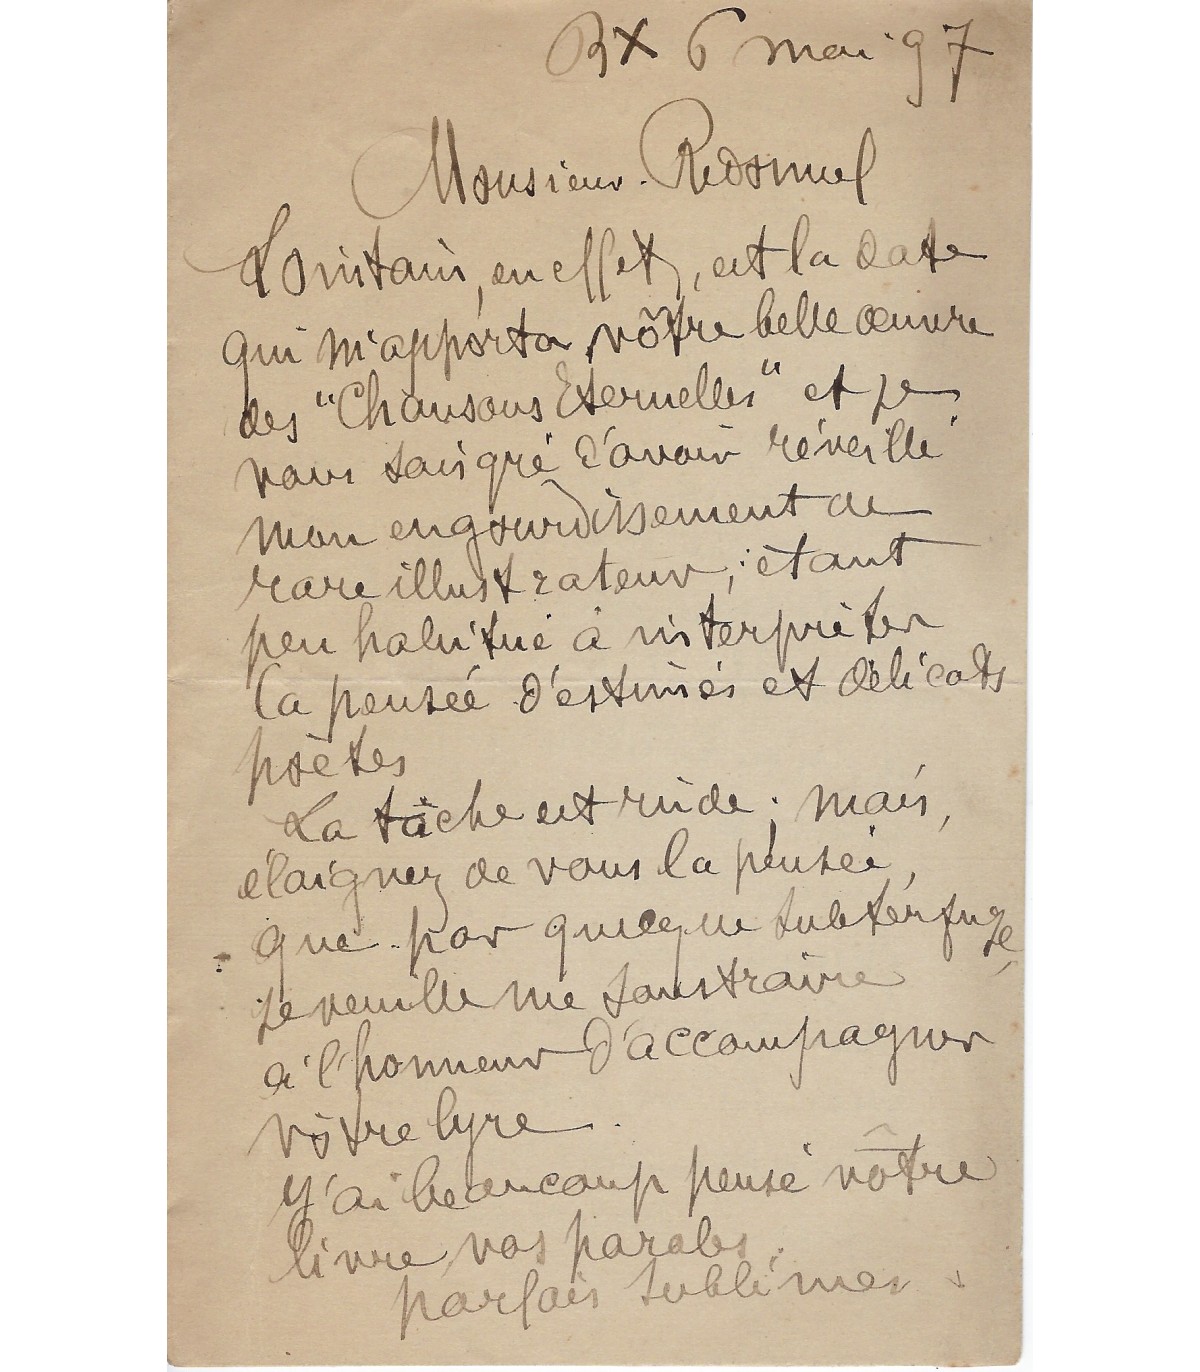 Bx 6 mai 97
Monsieur Redonnel
Lointain, en effet, est la date
qui m'apporta vôtre belle œuvre
des "Chansons Eternelles" et je
vous sais gré d'avoir réveillé
mon engourdissement de
rare illustrateur, étant
peu habitué à interprèter
la pensée d'estimés et délicats
poètes
La tâche est rude; mais,
éloignez de vous la pensée,
que par quelque subterfuge,
je veuille me soustraire
à l'honneur d'accompagner
vôtre lyre.
J'ai beaucoup pensé vôtre
livre vos paroles,
parfois sublimes